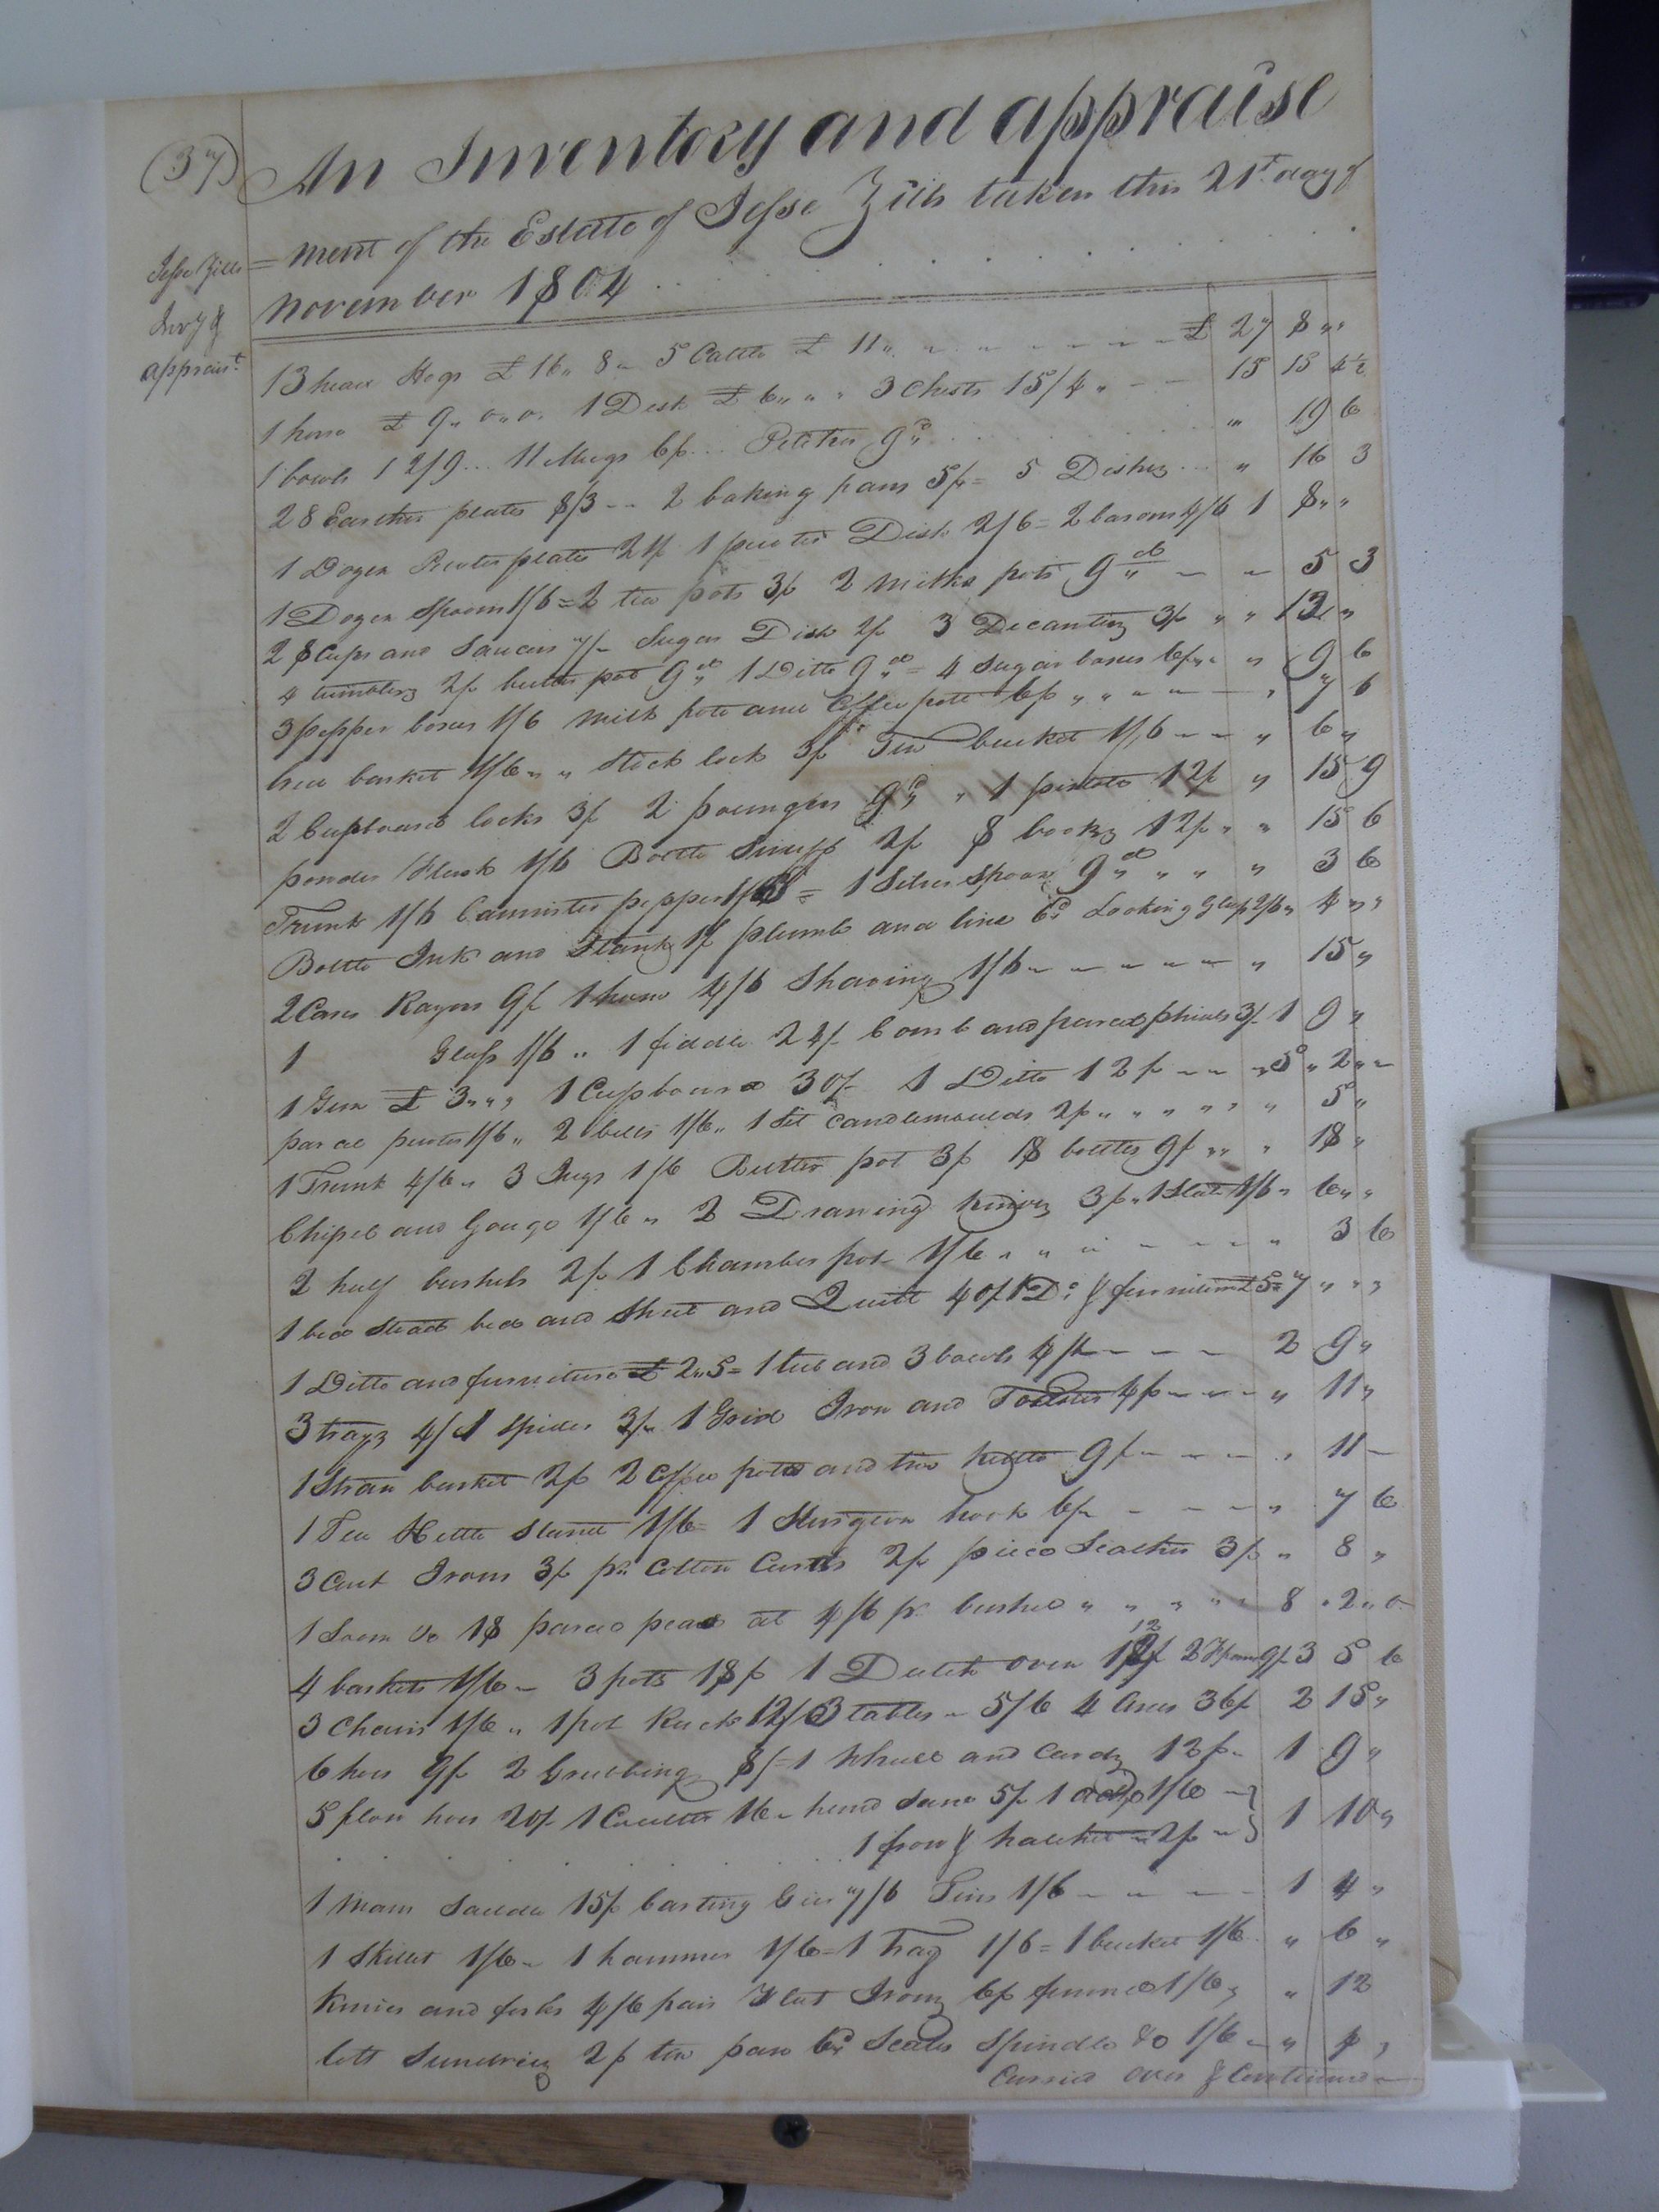 (37)
An Inventory and appraise
= ment of the Estate of Jesse Zills taken this 21st day of
November 1804
Jesse Zills
Invy &
appraist.
13 head Hogs £ 16 " 8 " 5 Cattle £ 11 " £ 27 8 " "
1 horse £ 9 " 0 " 0. 1 Desk £ 6 " " " 3 Chests 15/4 " 15 15 4½
1 bowls 12/9 ... 11 Mugs 6/ ... Pitcher 9d " 19 6
28 Earthen plates 8/3 -- 2 baking pans 5/ = 5 Dishes " 16 3
1 Dozen Pewter plates 21/ 1 pewter Dish 2/6 = 2 basons 4/6 1 8 " "
1 Dozen Spoons 1/6 = 2 tea pots 3/ 2 milk pots 9d - - 5 3
28 Cups and Saucers 7/- Sugar Dish 2/ 3 Decanters 3/ " " 12 "
4 tumblers 2/ butter pot 9d 1 Ditto 9d = 4 Sugar boxes 6/ " " 9 6
3 pepper boxes 1/6 milk pots and Coffee pott 6/ " " " 7 6
bread basket 1/6 " " Stock lock 3/ Tin bucket 1/6 -- " 6 "
2 Cupboard locks 3/ 2 poringers 9d " 1 pistole 12/ " 15 9
powder Flask 1/6 Bottle Snuff 2/ 8 books 12/ " " 15 6
Trunk 1/6 Cannister pepper 1/3 = 1 Silver Spoon 9d " " " 3 6
Bottle Ink and Stand 1/ plumb and line 6d Looking Glass 2/6 " 4 " "
2 Cases Razors 9/ 1 hone 4/6 Shaving 1/6 - - - - - " 15 "
1 Glass 1/6 " 1 fiddle 24/ Comb and parcel phials 3/- 1 9 "
1 Gun £ 3 " " " 1 Cupboard 30/- 1 Ditto 12/ -- 5 " 2 " -
parcel pewter 1/6 " 2 bells 1/6 " 1 Set Candlemoulds 2/ " " " " " " 5 "
1 Trunk 4/6 " 3 Jugs 1/6 Butter pot 3/ 18 bottles 9/ " " " 18 "
Chisel and Gouge 1/6 " 2 Drawing knives 3/ " 1 Slate 1/6 " 6 " "
2 half bushels 2/ 1 Chamber pot 1/6 " " " - - - " 3 6
1 bed Stead bed and Sheet and Quilt 40/ 1 Do. & furniture £5 = 7 " " "
1 Ditto and furniture £ 2 " 5 = 1 tub and 3 bowls 4/ - - - 2 9 "
3 trays 4/ 1 Spider 3/- 1 Grid Iron and Toaster 4/ - - - " 11 "
1 Straw basket 2/ 2 Coffee potts and two kettles 9/ - - - " 11 -
1 Tea Kettle Stand 1/6 = 1 Sturgeon hook 6/ - - - " 7 6
3 Cart Irons 3/ pr. Cotton Cards 2/ piece Leather 3/ " 8 "
1 Loom Do 18 parcel peas at 4/6 pr. bushel " " " " " 8 " 2 " 0
4 baskets 1/6 - 3 pots 18/ 1 Dutch oven 12/ 2 F pans 9/ 3 5 6
3 Chairs 1/6 " 1 pot Rack 12/6 3 tables - 5/6 4 Axes 36/ 2 15 "
6 hoes 9/ 2 Grubbing 8/ = 1 Wheel and Cards 12/ - 1 9 "
5 plow hoes 20/ 1 Coulter 1 6 - hand Saw 5/ 1 adze 1/6 -
1 frow & hatchet - 2/ - } 1 10 "
1 Mans Saddle 15/ Casting 7/6 1/6 - - - 1 4 "
1 Skillet 1/6 - 1 hammer 1/6 = 1 Tray 1/6 = 1 bucket 1/6 " 6 "
Knives and forks 4/6 pair Flat Irons 6/ funnel 1/6 " 12
lott Sundries 2/ tin pan 6d Scales Spindle Do 1/6 - "
Carried over & Continued -